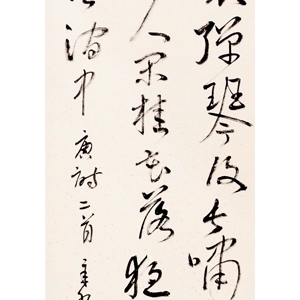 彈琴復長嘯
人閑桂花落夜
澗中 唐詩二首